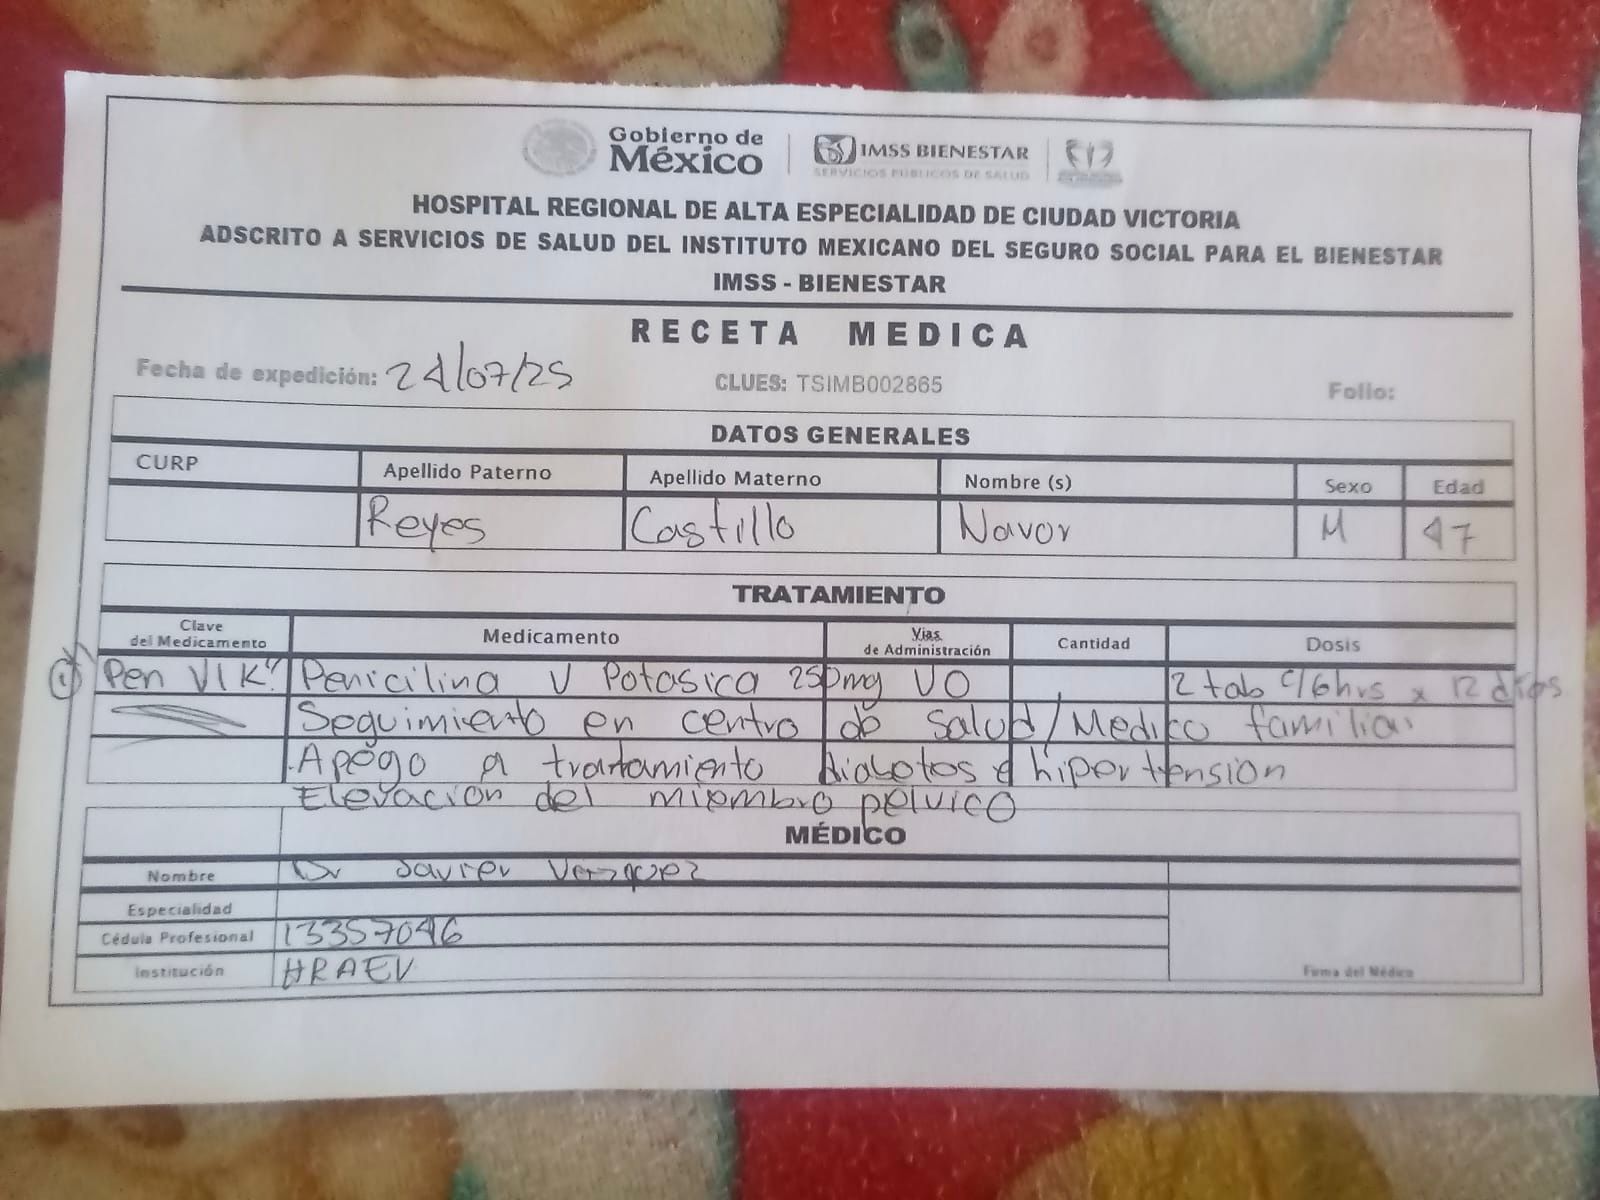 Gobierno de
México
IMSS BIENESTAR
SERVICIOS PÚBLICOS DE SALUD
HOSPITAL REGIONAL DE ALTA ESPECIALIDAD DE CIUDAD VICTORIA
ADSCRITO A SERVICIOS DE SALUD DEL INSTITUTO MEXICANO DEL SEGURO SOCIAL PARA EL BIENESTAR
IMSS - BIENESTAR
RECETA MEDICA
Fecha de expedición: 24/07/25 CLUES: TSIMB002865 Folio:
DATOS GENERALES
CURP Apellido Paterno Apellido Materno Nombre (s) Sexo Edad
Reyes Castillo Navor M 47
TRATAMIENTO
Clave del Medicamento Medicamento Vías de Administración Cantidad Dosis
① Pen Vi K" Penicilina V Potasica 250mg VO 2 tab c/6hrs x 12 dias
Seguimiento en centro de salud/Medico familiar
.Apego a tratamiento diabetes e hipertension
Elevacion del miembro pelvico
MÉDICO
Nombre Dr Javier Vazquez
Especialidad
Cédula Profesional 13357046
Institución HRAEV
Firma del Médico